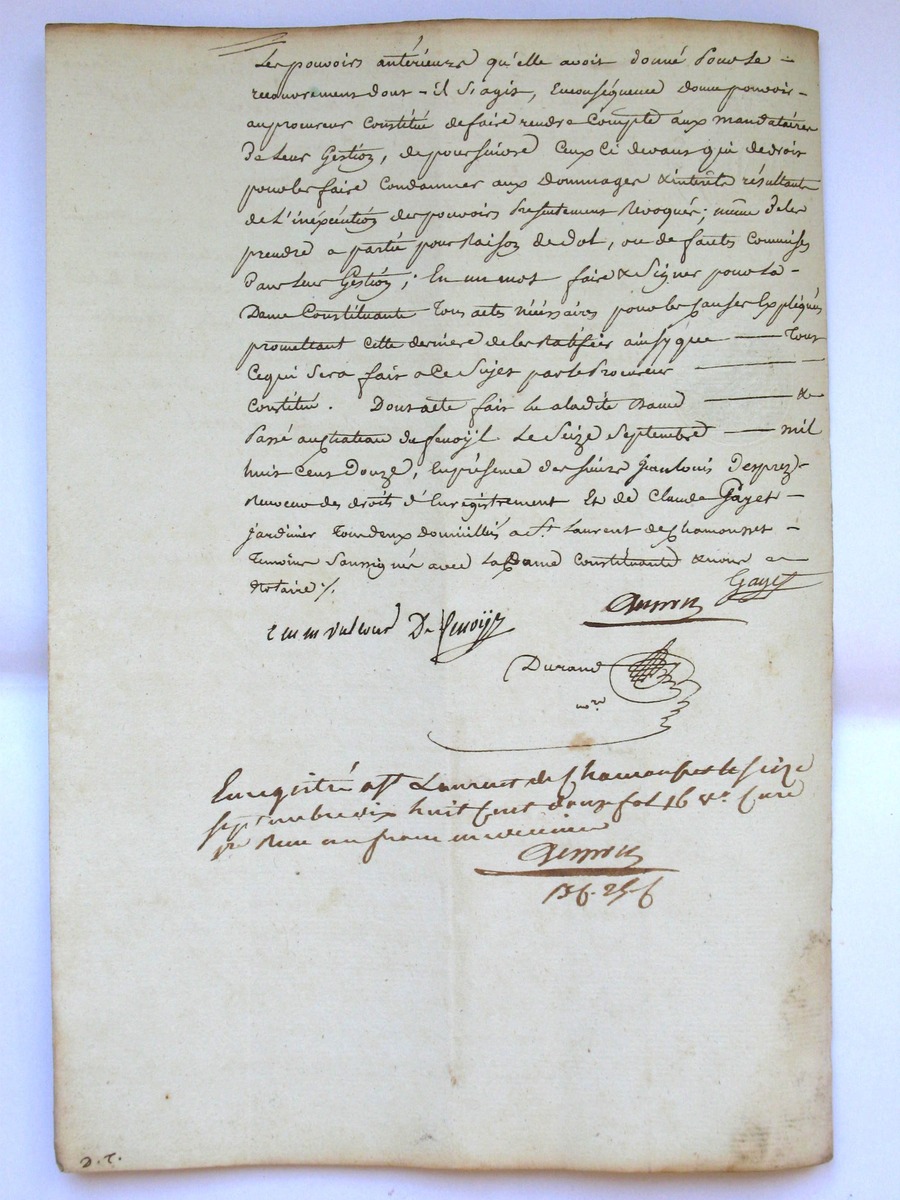 Les pouvoirs antérieurs qu'elle avoit donné Pour Le –
recouvrement dont – il S'agit, En conséquence donne pouvoir –
au procureur Constitué de faire rendre Compte aux mandataires
De Leur Gestion, de poursuivre Ceux Ci devant qui de droit
pour les faire Condamner aux Dommages & intérêts résultants
de L'inéxécution des pouvoirs Présentement Révoqués; même de les
prendre a partie pour Raison de dol, ou de fautes Commises
Dans Leur Gestion; En un mot faire & Signer pour La –
Dame Constituante Tous actes nécéssaires pour les causes Expliquées
promettant cette dernière de les Ratifier ainsÿ que —— Tout
Ce qui Sera fait a Ce Sujet par le Procureur ——
Constitué. Dont acte fait lu a ladite Dame —— &
Passé au chateau de fenoÿl Le Seize Septembre —— mil
huit Cent Douze, En présence des sieurs Jean Louis Desprez –
Receveur des droits d'Enregistrement Et de Claude Gayet –
jardinier Tous deux domiciliés a St. Laurent de Chamousset –
Temoins Soussignés avec La Dame Constituante & nous –
Notaire /.
Gayet
De fenoÿl
Durand
nore
Enregistré a St Laurent de Chamousset le seize
septembre dix huit Cent douze fol 16 vo. Case
un franc
D. T.